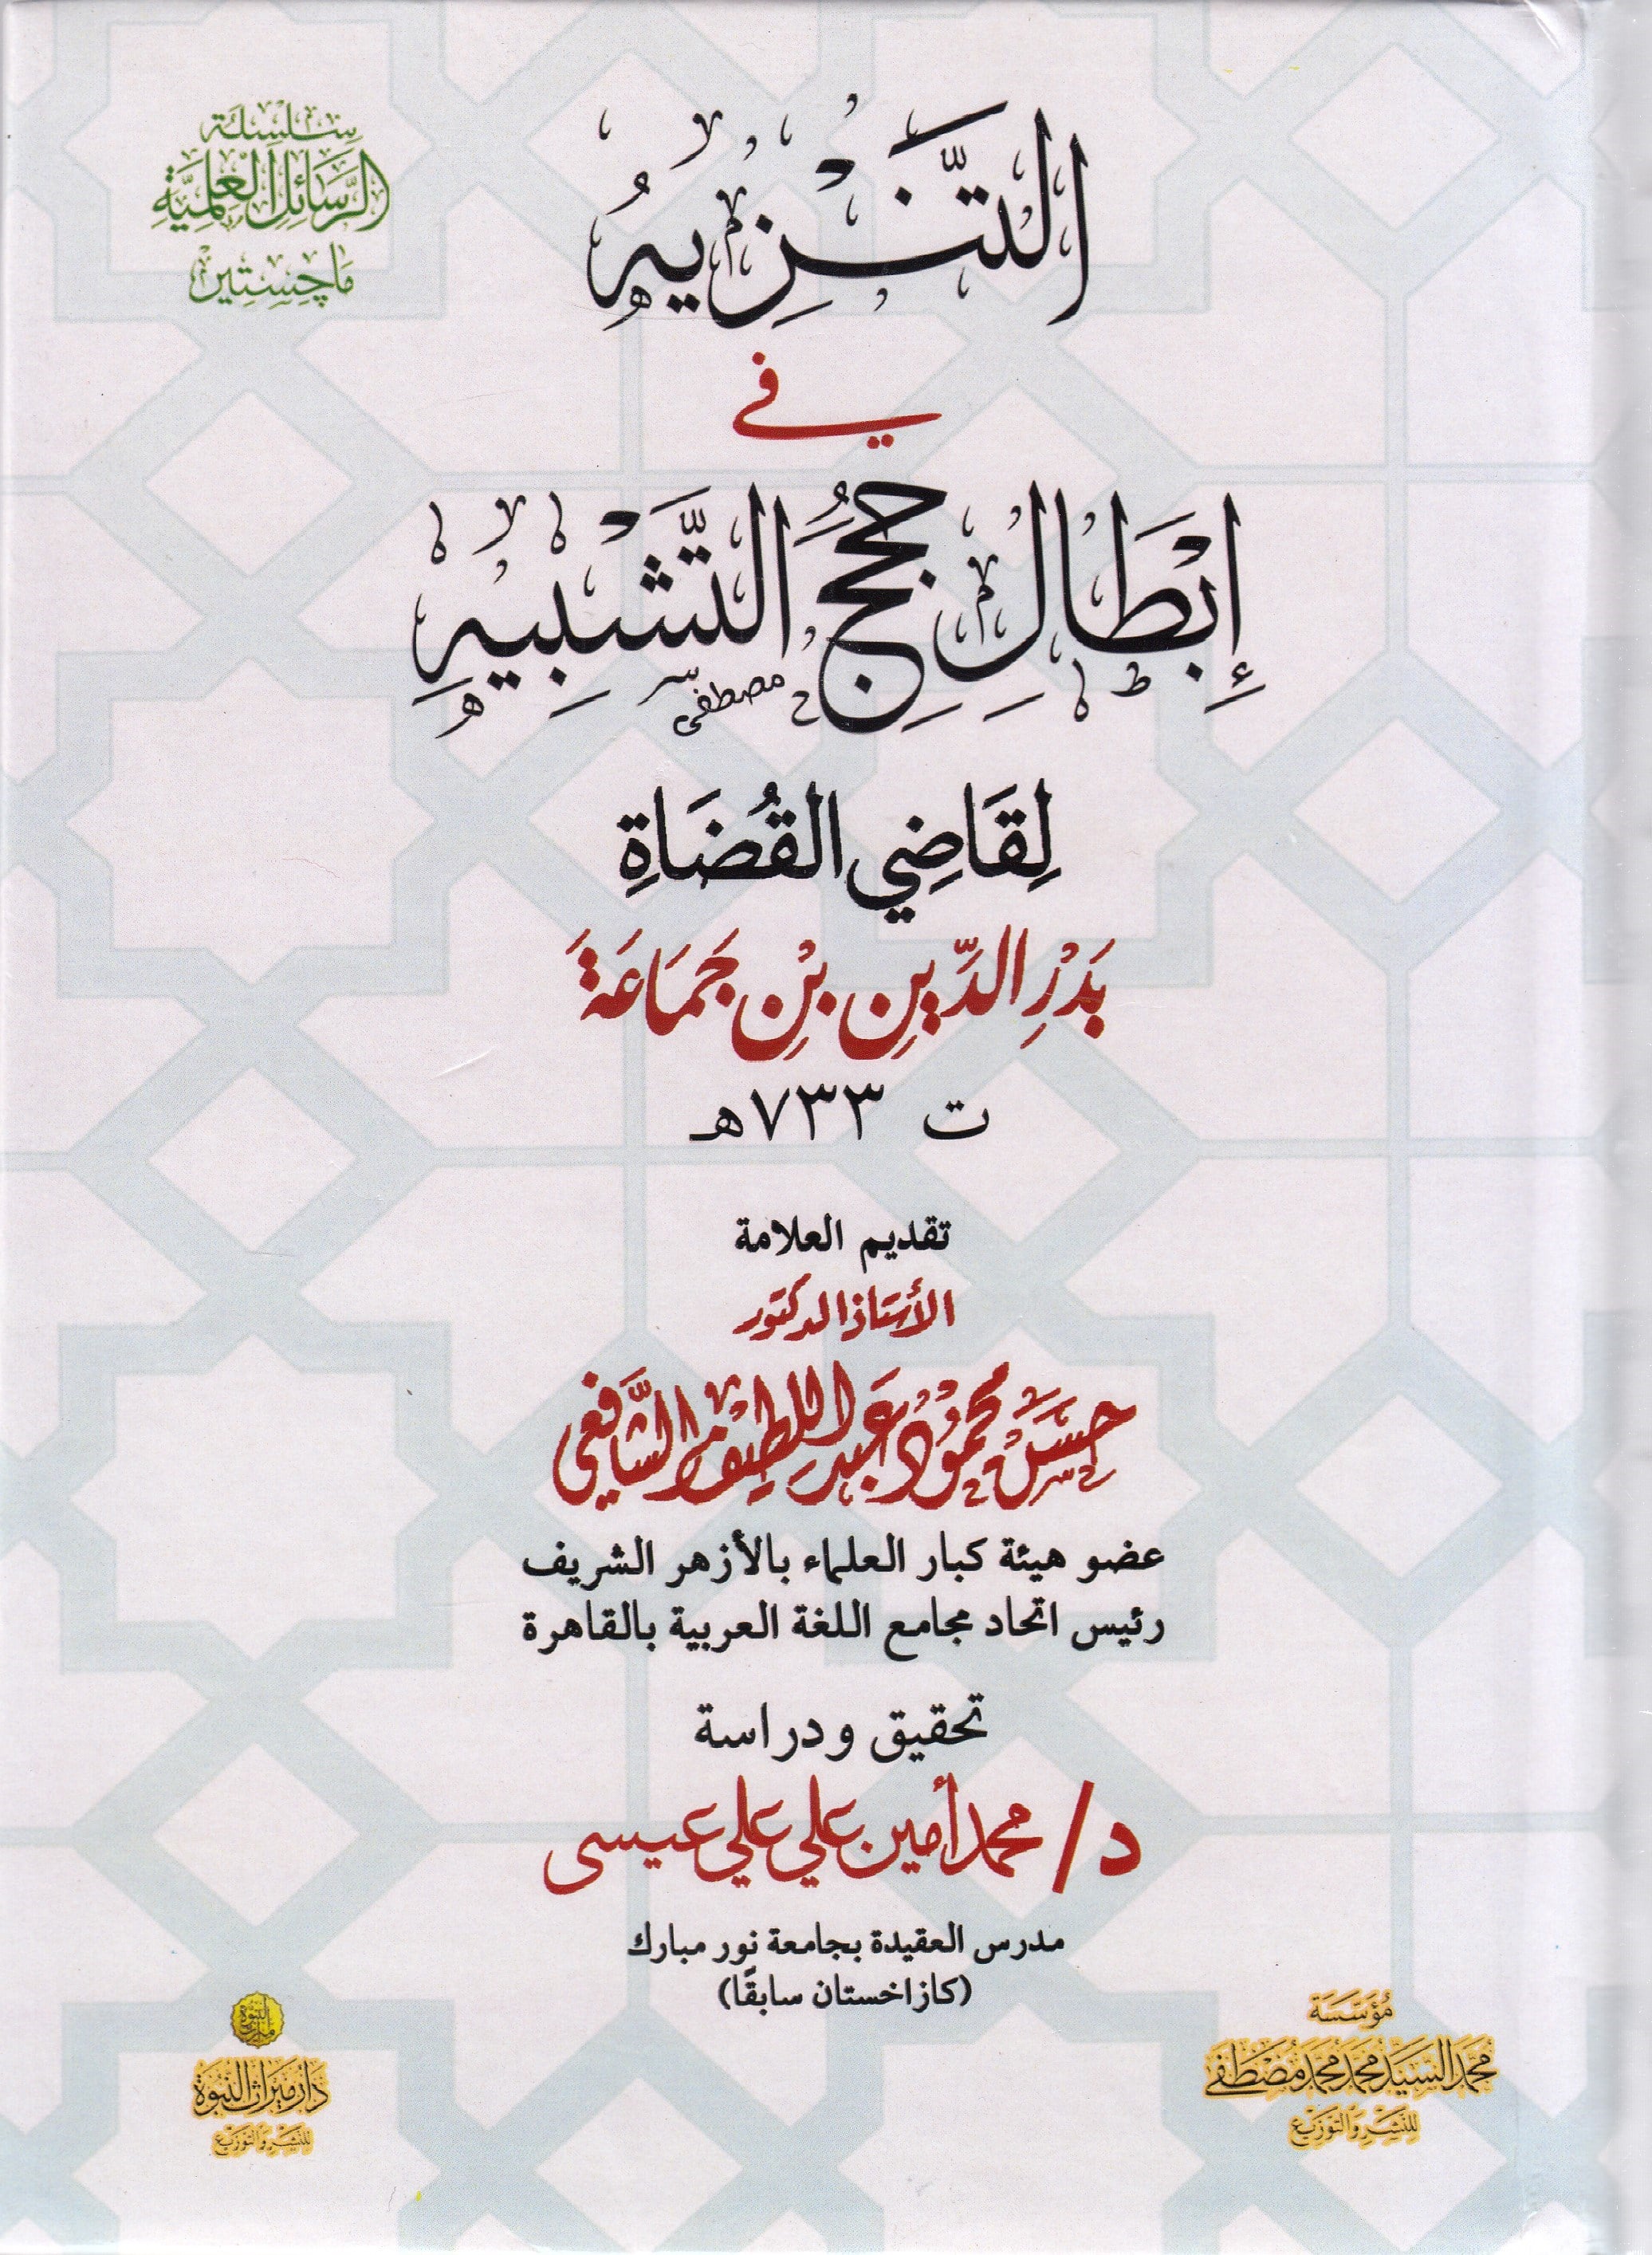 سلسلة
الرسائل العلمية
ماجستير
التَّنْزِيهُ
في
إِبْطَالِ حُجَجِ التَّشْبِيهِ
مصطفى
لِقَاضِي القُضَاةِ
بَدْرِ الدِّينِ بْنِ جَمَاعَةَ
ت ٧٣٣هـ
تقديم العلامة
الأستاذ الدكتور
حسن محمود عبد اللطيف الشافعي
عضو هيئة كبار العلماء بالأزهر الشريف
رئيس اتحاد مجامع اللغة العربية بالقاهرة
تحقيق ودراسة
د/ محمد أمين علي علي عيسى
مدرس العقيدة بجامعة نور مبارك
(كازاخستان سابقًا)
مؤسسة
محمد السيد محمد محمد مصطفى
للنشر والتوزيع
ميراث النبوة
دار ميراث النبوة
للنشر والتوزيع